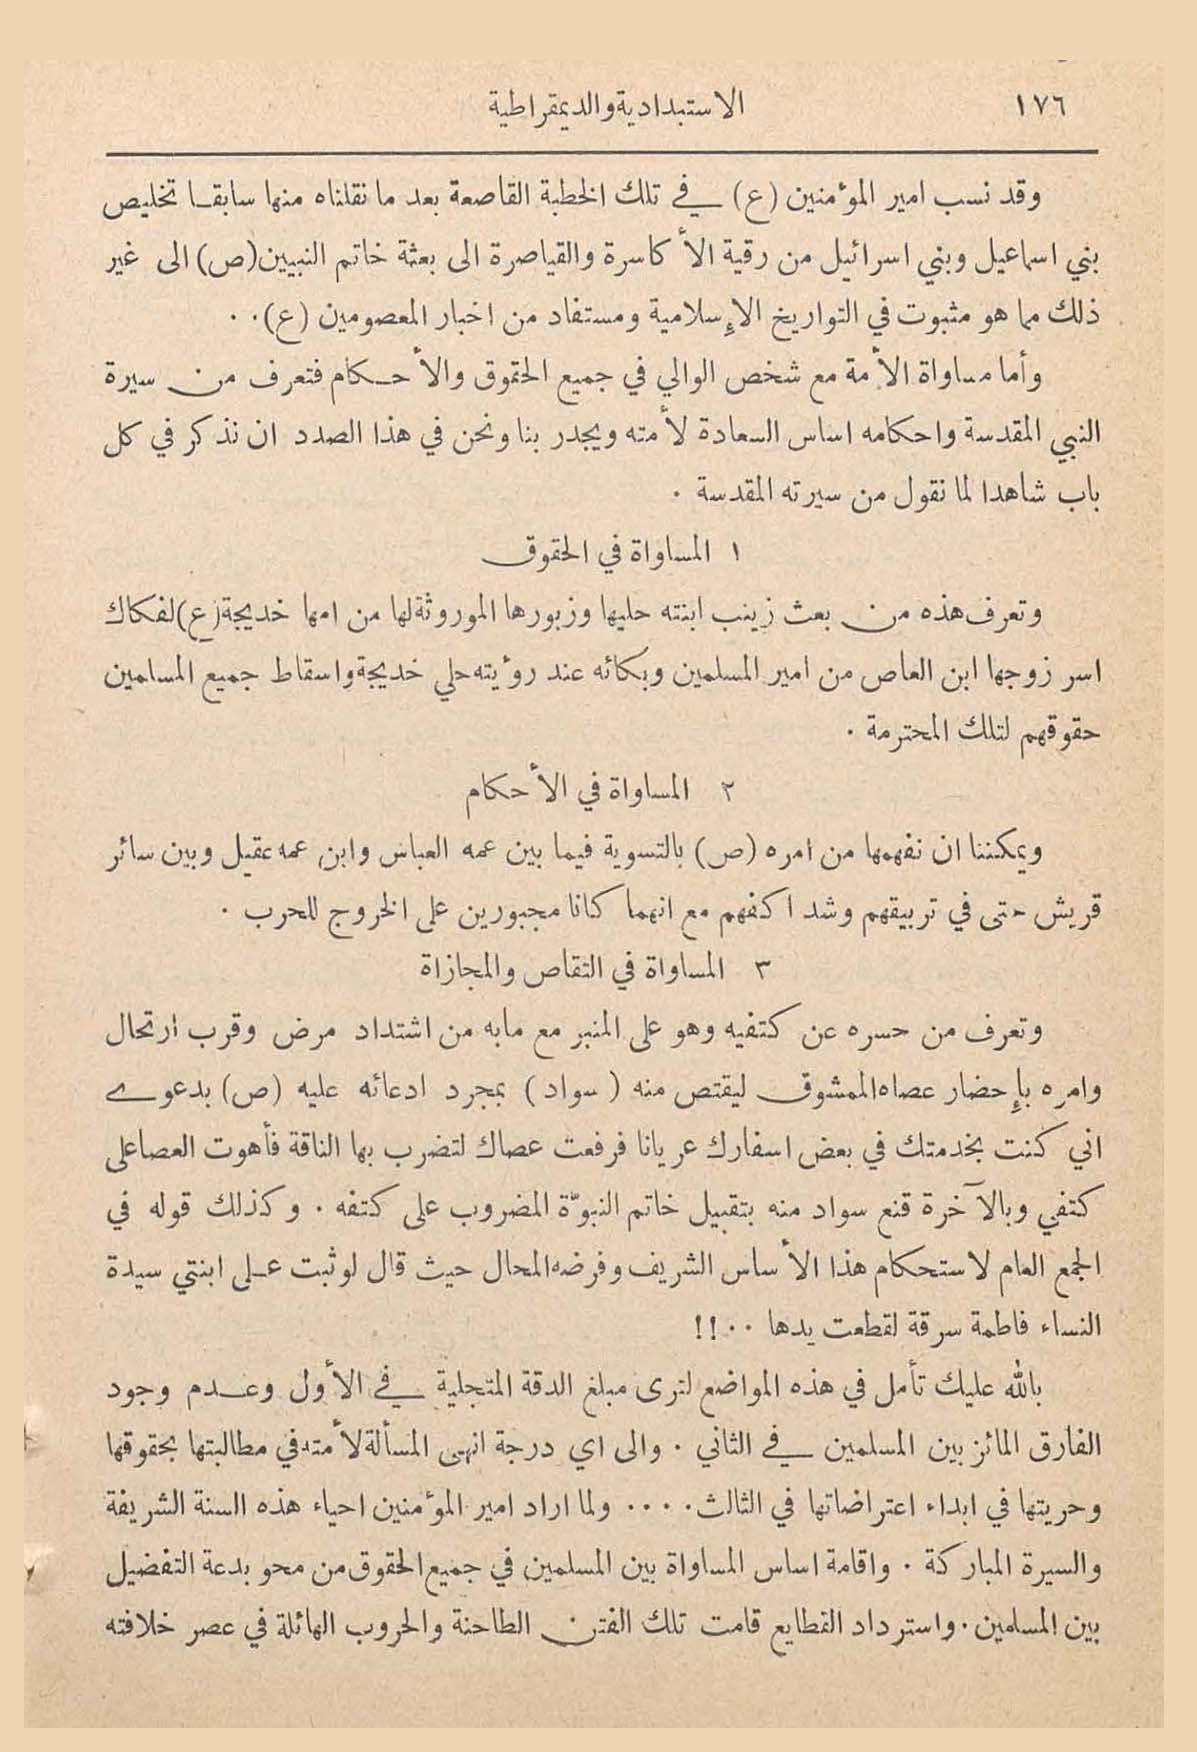 ١٧٦ الاستبدادية والديمقراطية
وقد نسب امير المؤمنين (ع) في تلك الخطبة القاصعة بعد ما نقلناه منها سابقا تخليص
بني اسماعيل وبني اسرائيل من رقية الأكاسرة والقياصرة الى بعثة خاتم النبيين (ص) الى غير
ذلك مما هو مثبوت في التواريخ الإسلامية ومستفاد من اخبار المعصومين (ع)٠٠
وأما مساواة الأمة مع شخص الوالي في جميع الحقوق والأحكام فتعرف من سيرة
النبي المقدسة واحكامه اساس السعادة لأمته ويجدر بنا ونحن في هذا الصدد ان نذكر في كل
باب شاهدا لما نقول من سيرته المقدسة ٠
١ المساواة في الحقوق
وتعرف هذه من بعث زينب ابنته حليها وزبورها الموروثة لها من امها خديجة (ع) لفكاك
اسر زوجها ابن العاص من امير المسلمين وبكائه عند رؤيته حلي خديجة واسقاط جميع المسلمين
حقوقهم لتلك المحترمة ٠
٢ المساواة في الأحكام
ويمكننا ان نفهمها من امره (ص) بالتسوية فيما بين عمه العباس وابن عمه عقيل وبين سائر
قريش حتى في تربيقهم وشد اكفهم مع انهما كانا مجبورين على الخروج للحرب ٠
٣ المساواة في التقاص والمجازاة
وتعرف من حسره عن كتفيه وهو على المنبر مع مابه من اشتداد مرض وقرب ارتحال
وامره بإحضار عصاه الممشوق ليقتص منه ( سواد ) بمجرد ادعائه عليه (ص) بدعوى
اني كنت بخدمتك في بعض اسفارك عريانا فرفعت عصاك لتضرب بها الناقة فأهوت العصا على
كتفي وبالآخرة قنع سواد منه بتقبيل خاتم النبوّة المضروب على كتفه ٠ وكذلك قوله في
المجمع العام لاستحكام هذا الأساس الشريف وفرضه المحال حيث قال لوثبت على ابنتي سيدة
النساء فاطمة سرقة لقطعت يدها ٠٠!!
بالله عليك تأمل في هذه المواضع لترى مبلغ الدقة المتجلية في الأول وعدم وجود
الفارق المائز بين المسلمين في الثاني ٠ والى اي درجة انهى المسألة لأمته في مطالبتها بحقوقها
وحريتها في ابداء اعتراضاتها في الثالث٠٠٠٠ ولما اراد امير المؤمنين احياء هذه السنة الشريفة
والسيرة المباركة ٠ واقامة اساس المساواة بين المسلمين في جميع الحقوق من محو بدعة التفضيل
بين المسلمين٠واسترداد القطايع قامت تلك الفتن الطاحنة والحروب الهائلة في عصر خلافته